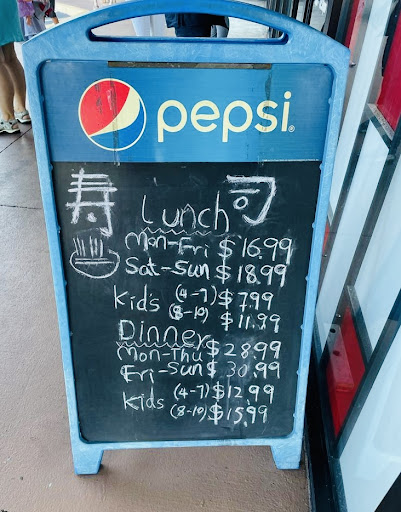 pepsi
寿 司
Lunch
Mon-Fri $16.99
Sat-Sun $18.99
Kid's (4-7) $7.99
(8-10) $11.99
Dinner
Mon-Thu $28.99
Fri-Sun $30.99
Kids (4-7) $12.99
(8-10) $15.99